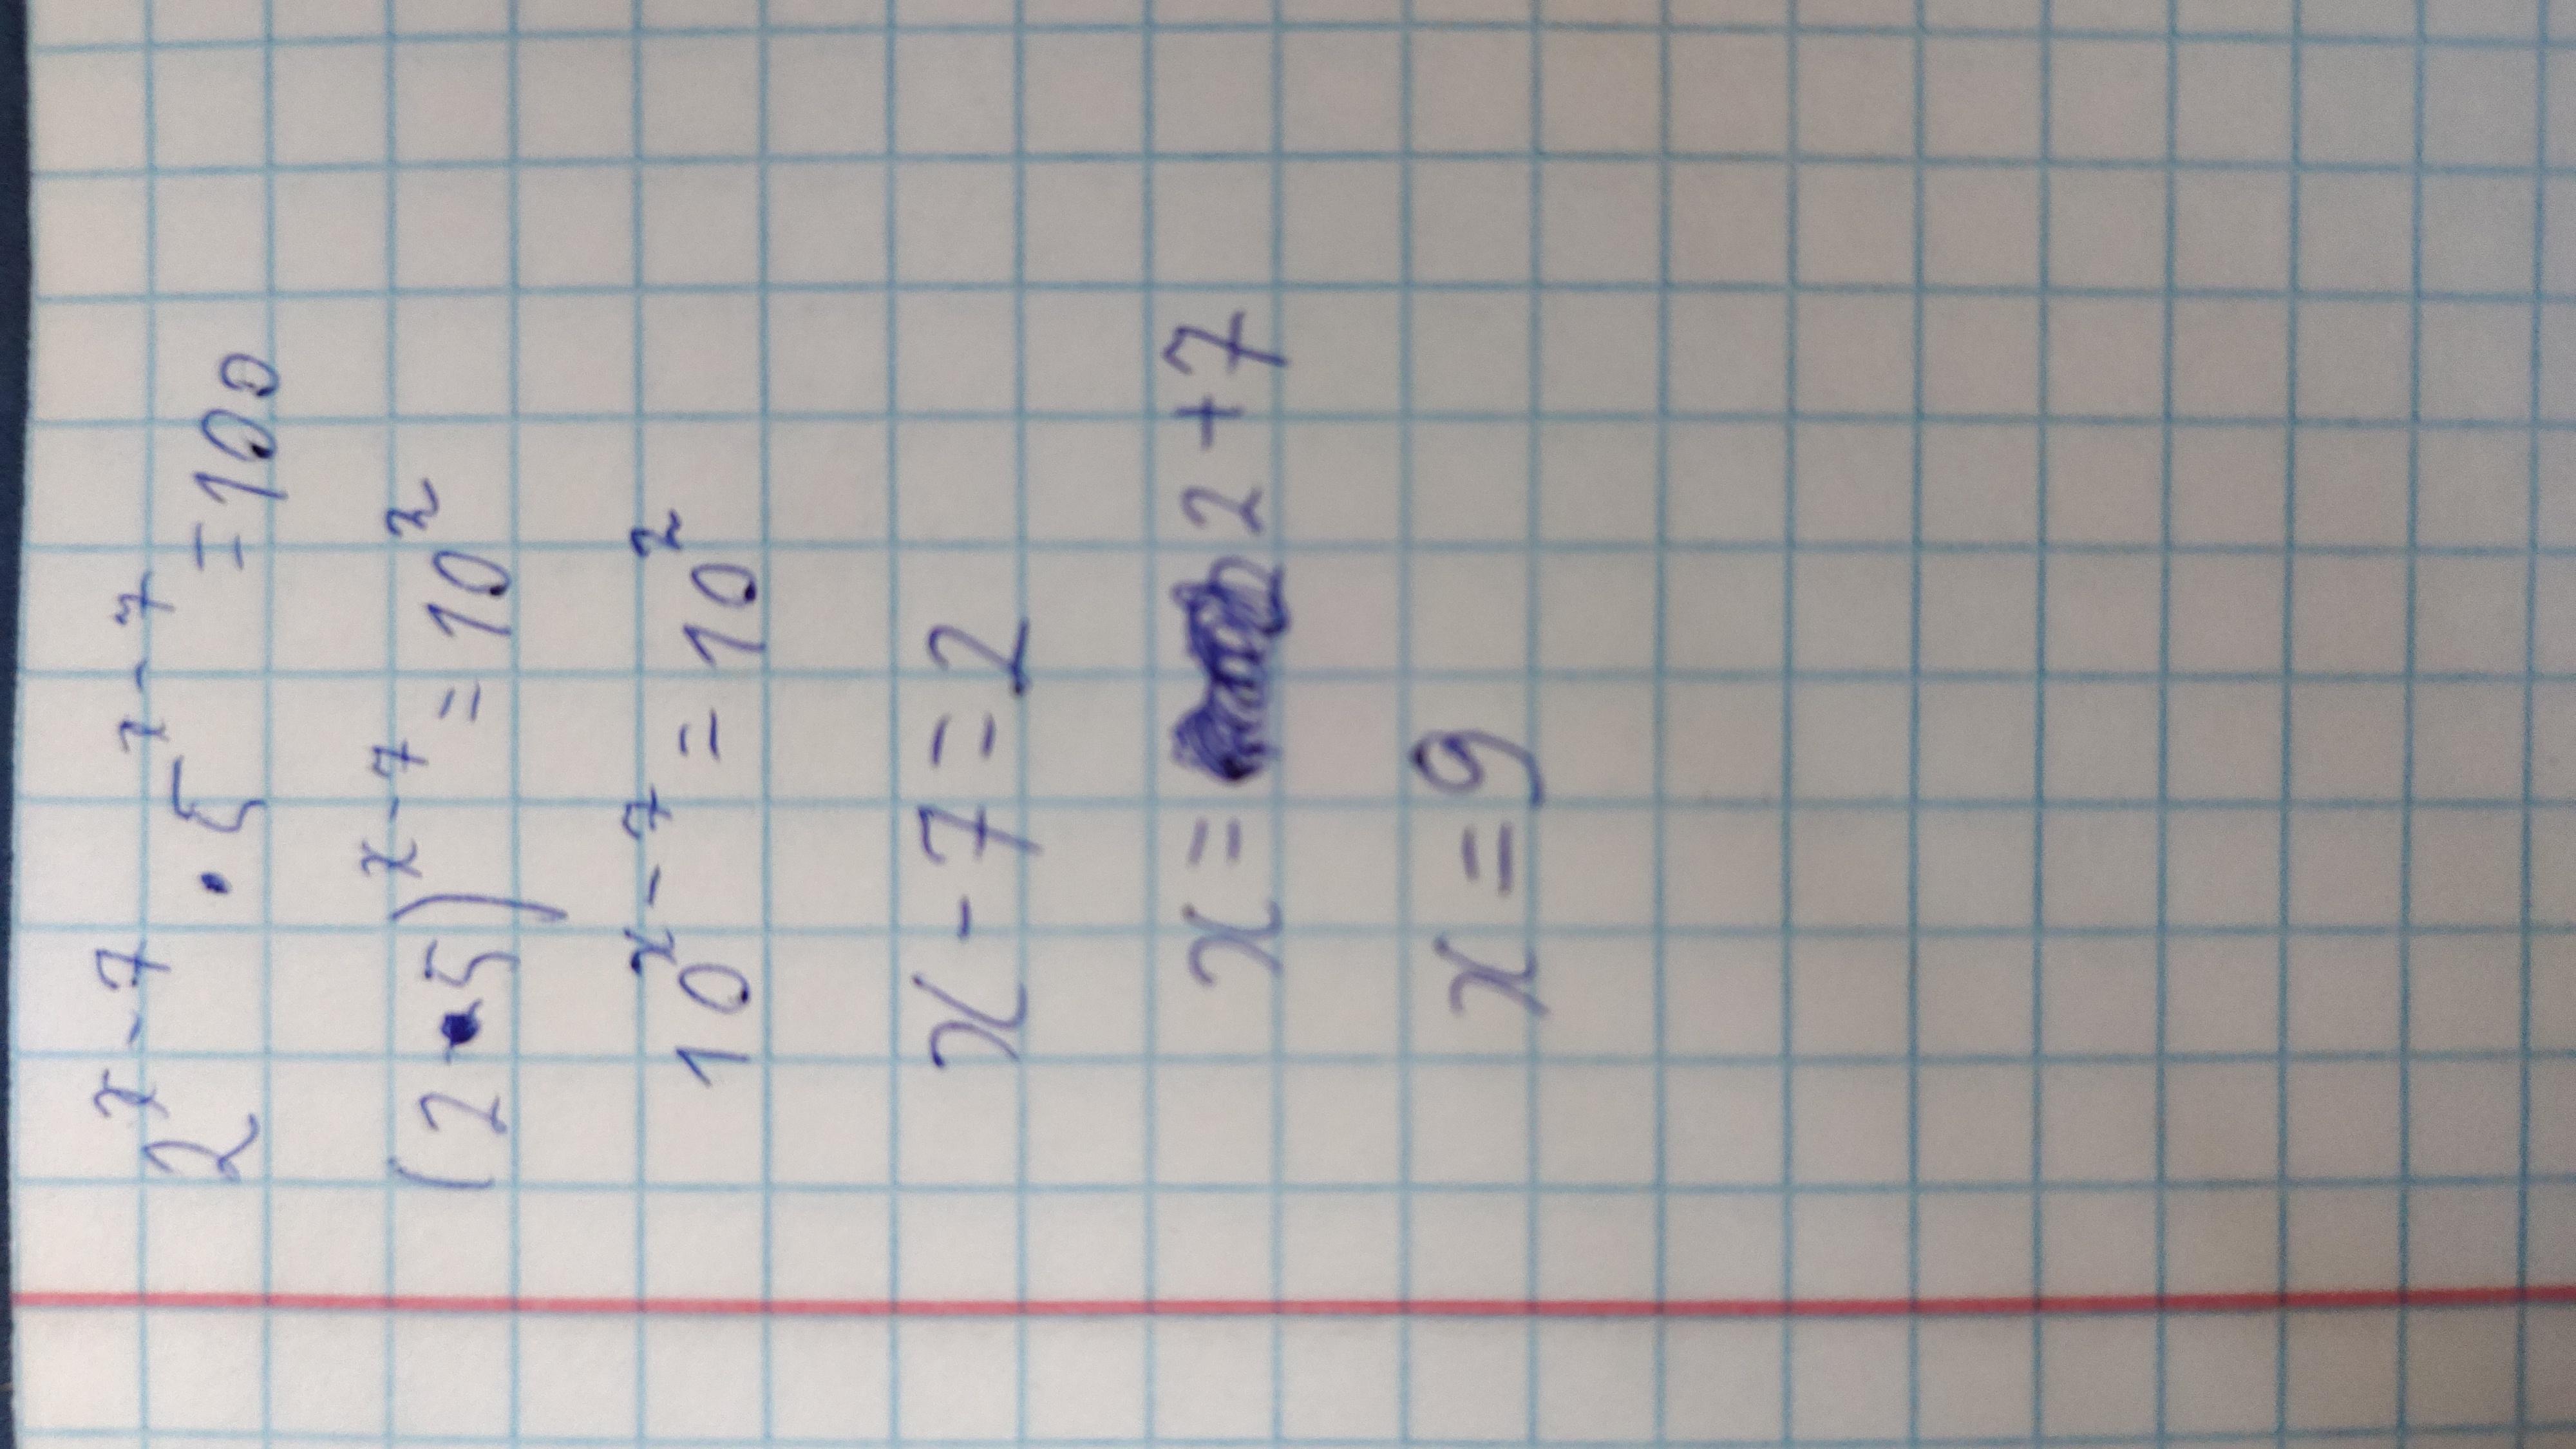 2^{x-7} · 5^{x-7} = 100
(2·5)^{x-7} = 10^2
10^{x-7} = 10^2
x-7=2
x= 2+7
x=9